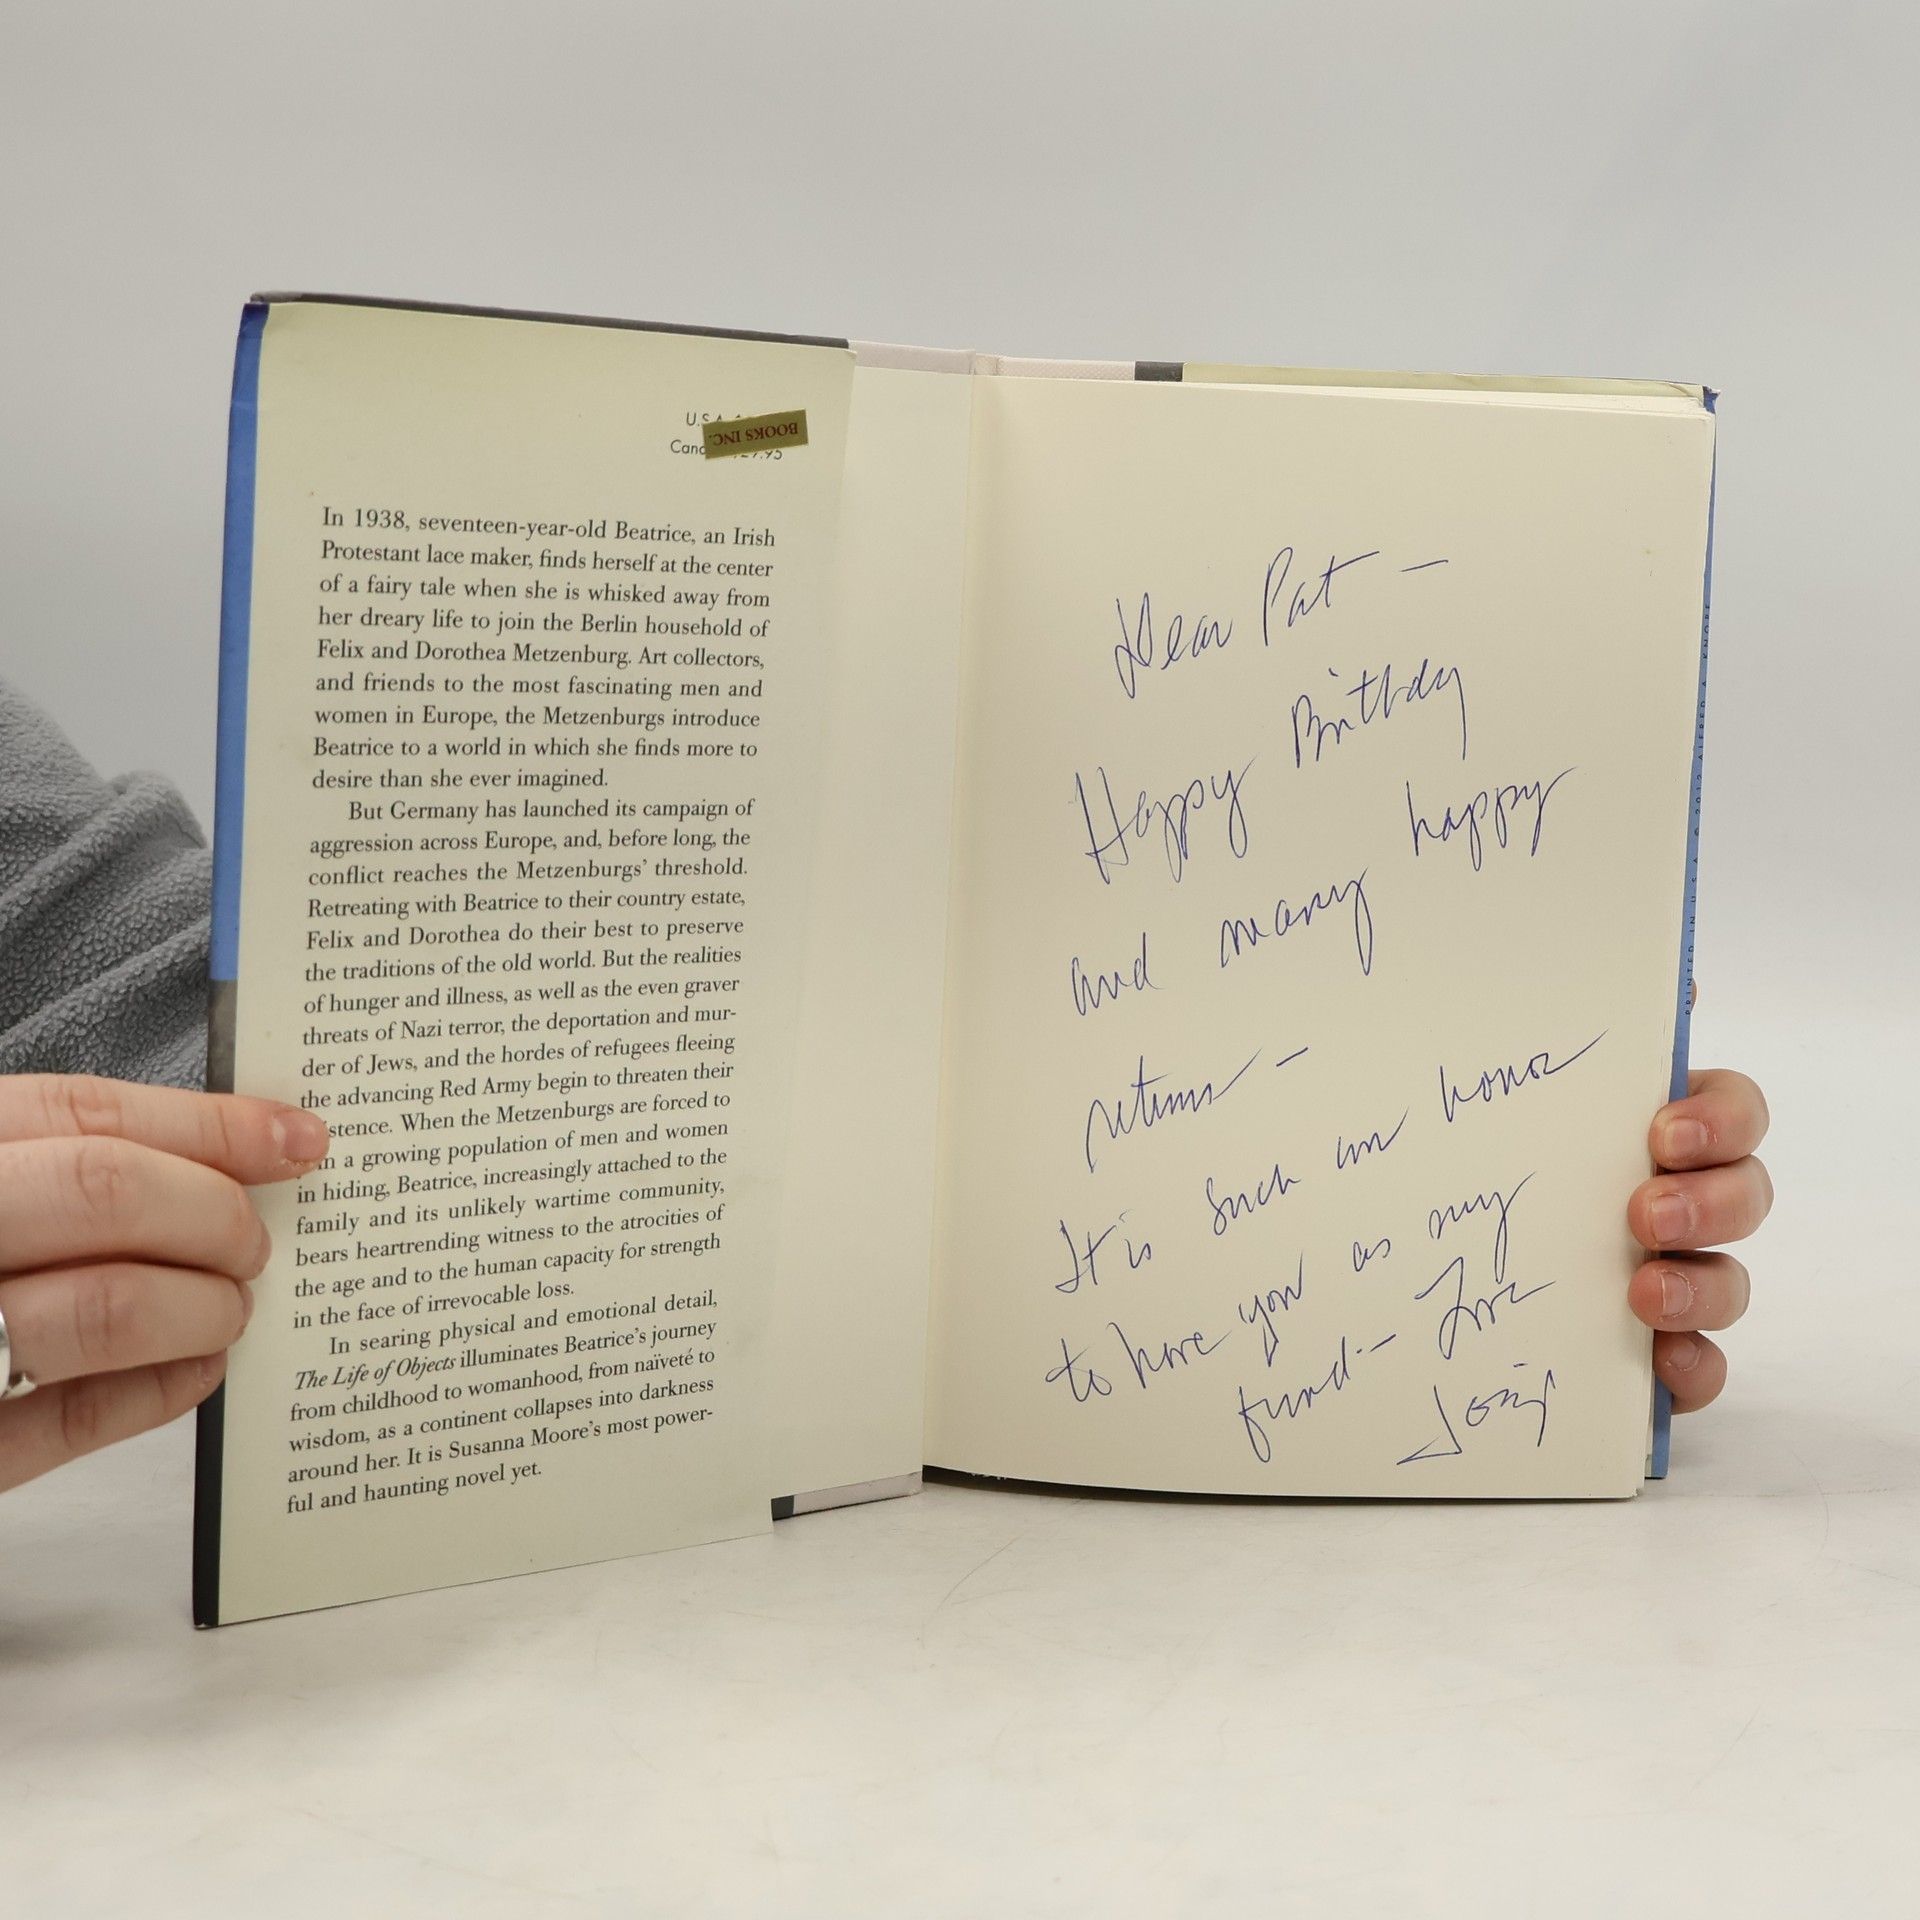 U.S.A.
BOOKS INC.
In 1938, seventeen-year-old Beatrice, an Irish
Protestant lace maker, finds herself at the center
of a fairy tale when she is whisked away from
her dreary life to join the Berlin household of
Felix and Dorothea Metzenburg. Art collectors,
and friends to the most fascinating men and
women in Europe, the Metzenburgs introduce
Beatrice to a world in which she finds more to
desire than she ever imagined.
But Germany has launched its campaign of
aggression across Europe, and, before long, the
conflict reaches the Metzenburgs' threshold.
Retreating with Beatrice to their country estate,
Felix and Dorothea do their best to preserve
the traditions of the old world. But the realities
of hunger and illness, as well as the even graver
threats of Nazi terror, the deportation and mur-
der of Jews, and the hordes of refugees fleeing
the advancing Red Army begin to threaten their
stence. When the Metzenburgs are forced to
a growing population of men and women
in hiding, Beatrice, increasingly attached to the
family and its unlikely wartime community,
bears heartrending witness to the atrocities of
the age and to the human capacity for strength
in the face of irrevocable loss.
In searing physical and emotional detail,
The Life of Objects illuminates Beatrice's journey
from childhood to womanhood, from naïveté to
wisdom, as a continent collapses into darkness
around her. It is Susanna Moore's most power-
ful and haunting novel yet.
Dear Pat –
Happy Birthday
and many happy
returns –
It is such an honor
to have you as my
friend – Love
PRINTED IN U.S.A. © 2012 ALFRED A. KNOPF